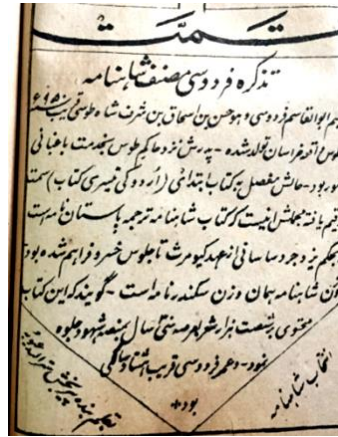 تمت
تذکره فردوسی مصنف شاهنامه
ابوالقاسم فردوسی و هو حسن بن اسحاق بن شرف شاه طوسی قریب
طوس خراسان تولد شده - پدرش نزد حاکم طوس بخدمت باغبانی
بود - حالش مفصل در کتاب ابتدائی (اردو کی تیسری کتاب) سمت
رقیم یافته مجملش اینست که کتاب شاهنامه ترجمه باستان نامه است
بحکم یزدجرد ساسانی از عهد کیومرث تا جلوس خسرو فراهم شده بود
وزن شاهنامه همان وزن سکندرنامه است - گویند که این کتاب
محتوی بر شصت هزار شعر بعرصه سی سال بمنصه شهود جلوه
نمود - و عمر فردوسی قریب هشتاد سالگی
بود
انتخاب شاهنامه